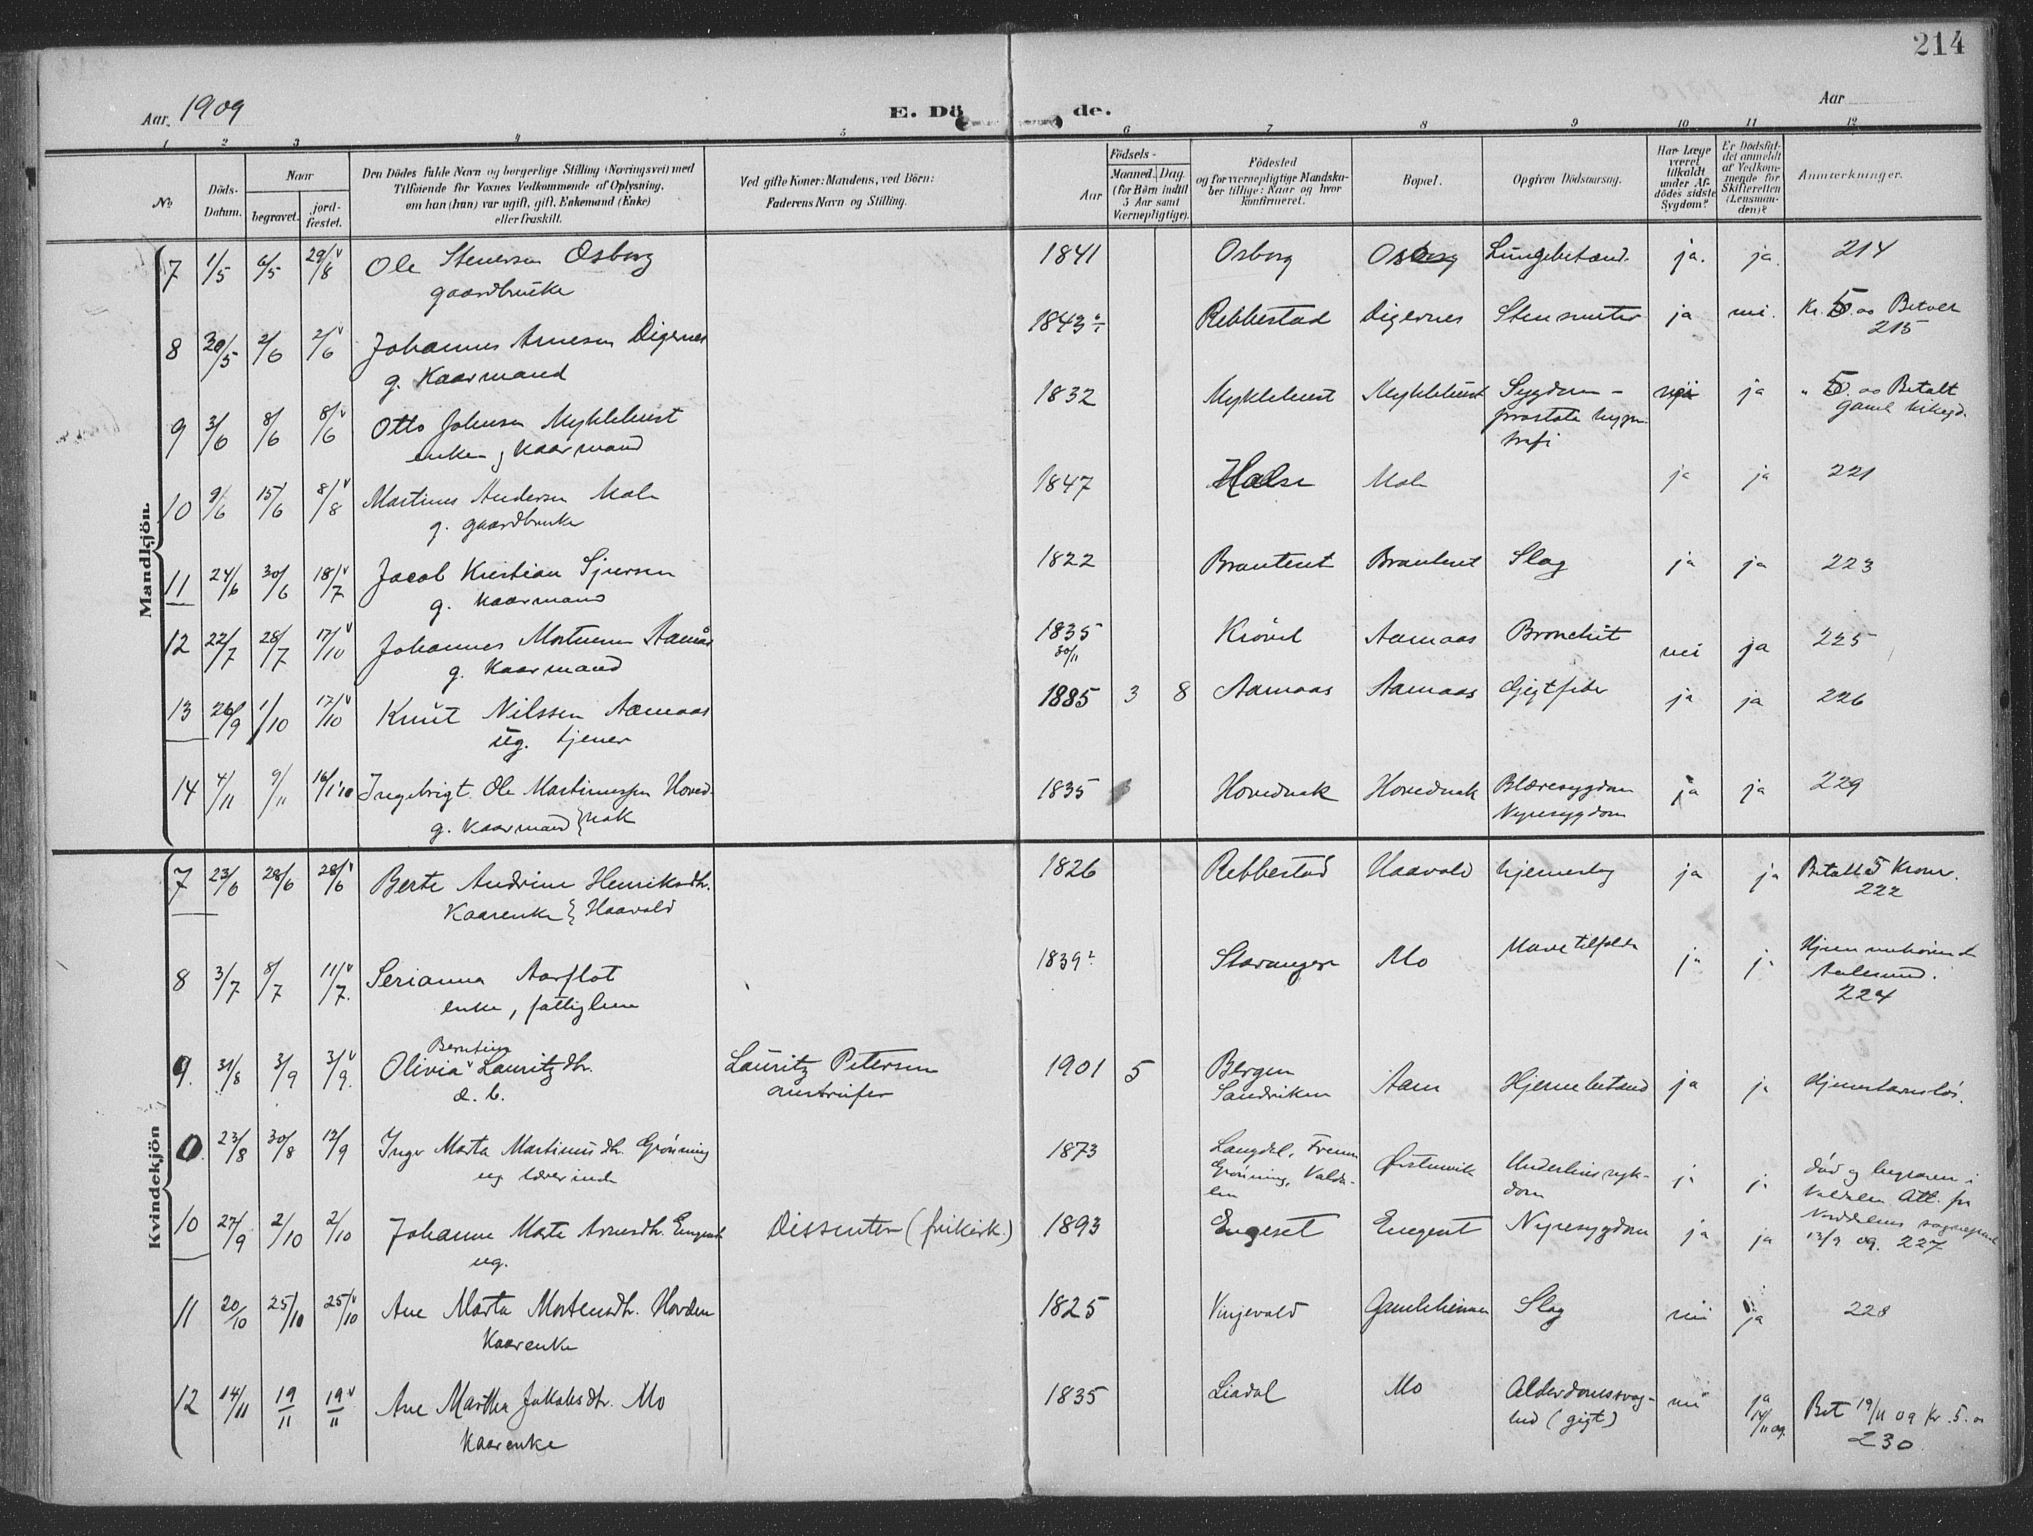 214
Aar 1909
E. Dö de.
Aar
1 2 3 4 5 6 7 8 9 10 11 12
No.
Döds-Datum.
Naar
begravet.
jord-fæstet.
Den Dödes fulde Navn og borgerlige Stilling (Næringsvei) med
Tilföiende for Voxnes Vedkommende af Oplysning,
om han (hun) var ugift, gift, Enkemand (Enke)
eller fraskilt.
Ved gifte Koner: Mandens, ved Börn:
Faderens Navn og Stilling.
Födsels-
Aar
Maaned. Dag.
(for Börn indtil
5 Aar samt
Værnepligtige).
Födested
og for værnepligtige Mandska-
ber tillige: Naar og hvor
konfirmeret.
Bopæl.
Opgiven Dödsaarsag.
Har Læge
været
tilkaldt
under Af-
dödes sidste
Sygdom?
Er Dödsfal-
det anmeldt
af Vedkom-
mende for
Skifteretten
(Lensman-
den)?
Anmærkninger.
Mandkjön.
7 1/5 6/5 29/8 Ole Stenersen Osborg 1841 Osborg Osborg Lungebetænd. ja. ja. 214
gaardbruke
8 30/5 2/6 2/6 Johannes Arnesen Digernes 1843 Rebbestad Digernes Stensmerter ja nei. Kr. 5.00 Betalt
g. Kaarmand 215
9 3/6 8/6 8/6 Otto Johnsen Myklebust 1832 Myklebust Myklebust Sygdom - ja " 5.00 Betalt
enkem, Kaarmand prostata hyper
trofi
10 9/6 15/6 8/8 Martinus Andersen Mole 1847 Halse Mole ja ja 221
g. gaardbruke
11 24/6 30/6 18/7 Jacob Kristian Sjursen 1822 Brauteset Brauteset Slag ja ja 223
g. Kaarmand
12 22/7 28/7 17/10 Johannes Aamås 1835 30/11 Aamaas Bronchit nei ja 225
g. Kaarmand
13 26/9 1/10 17/10 Knut Nilssen Aamaas 1885 3 8 Aamaas Aamaas Gigtfeber ja ja 226
ug. tjener
14 4/11 9/11 16/1 10 Ingebrigt Ole Martinussen Hoved- 1835 Hovednak Hovednak Blæresygdom ja ja 229
g. Kaarmand } nak Nyresygdom
Kvindekjön
7 23/6 28/6 28/6 Berte Andrine Henriksdtr. 1826 Rebbestad Haavold hjerneslag ja ja Betalt 5 Kroner.
Kaarenke } Haavold 222
8 3/7 8/7 11/7. Serianna Aarflot 1839 Stavanger Mo Mavetilfælde ja ja Hjemmehörende
enke, fattiglem Aalesund.
224
9. 31/8 3/9 3/9. Olivia Berntine Lauritzdtr. Lauritz Petersen 1901 5 Bergen Aam Hjernebetænd ja ja
d. b. Sandviken
0. 23/8 30/8 12/9 Inger Marta Martinusdtr. Grönning 1873 Langdal, Grönning, Valdalen Örstenvik Underlivssyk-dom ja ja död og begraven i
ug lærerinde Valdalen Att. fra
Norddalens sogneprest
13/9 09. 227
10 27/9 2/10 2/10 Johanne Marte Arnesdtr. Engeset Dissenter (frikirk.) 1893 Engeset Engeset Nyresygdom ja ja
ug.
11 20/10 25/10 25/10 Ane Marta Mortensdtr. Hovden 1825 Vinjevold Gamlehjemmet Slag nei ja 228
Kaarenke
12 14/11 19/11 19/11 Ane Martha Jakobsdtr. Mo 1835 Liadal Mo Alderdomssvag- nei ja 14/11 09. Bet 19/11 09 Kr. 5.00
Kaarenke hed (gigt) 230